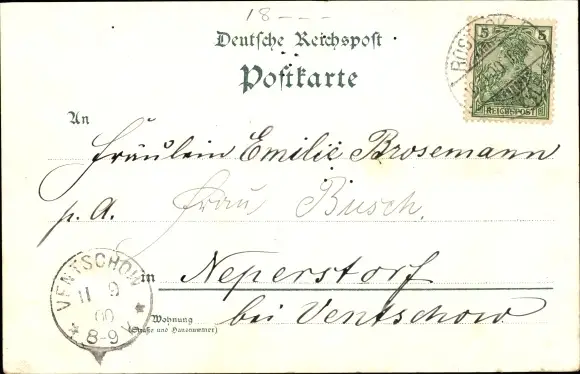 18---
Deutsche Reichspost
Postkarte
5 5
REICHSPOST
An
Fräulein Emilie Brosemann
p. A. Frau Busch.
in Neperstorf
bei Ventschow
Wohnung
(Straße und Hausnummer)
VENTSCHOW
11 9
00
8-9 V